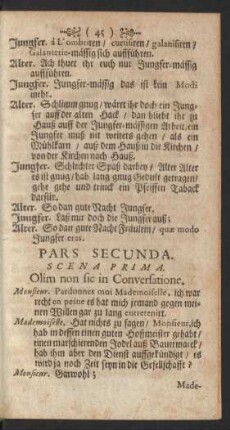 ( 45 )
Jungfer. à L'ombriren / courisiren / galanisiren /
Galanterie-mässig sich aufführen.
Alter. Ach thuet ihr euch nur Jungfer-mässig
aufführen.
Jungfer. Jungfer-mässig das ist kein Modi
mehr.
Alter. Schlimm gnug / wäret ihr doch ein Jung-
fer auff der alten Hack / dan bliebt ihr zu
Hauß auff der Jungfer-mässigen Arbeit / ein
Jungfer muß nit weiters gehen / als ein
Mühlkarn / auß dem Hauß in die Kirchen /
von der Kirchen nach Hauß.
Jungfer. Schlechter Spaß darbey / Alter Alter
es ist gnug / hab lang gnug Gedult getragen /
gehe gehe und trinck ein Pfeiffen Taback
darfür.
Alter. So dan gute Nacht Jungfer.
Jungfer. Last nur doch die Jungfer auß;
Alter. So dan gute Nacht Fräulein / quæ modo
Jungfer eras.
PARS SECUNDA.
SCENA PRIMA.
Olim non sic in Conversatione.
Monsieur. Pardonnes moi Mademoiselle, ich war
recht en peine es hat mich jemand gegen mei-
nen Willen gar zu lang entretenirt.
Mademoiselle. Hat nichts zu sagen / Monsieur, ich
hab indessen einen guten Hoffmeister gehabt /
einen marschierenden Jodel auß Baurenmack /
hab ihm aber den Dienst auffgekündigt / es
wird ja noch Zeit seyn in die Gesellschafft?
Monsieur. Garwohl;
Made-